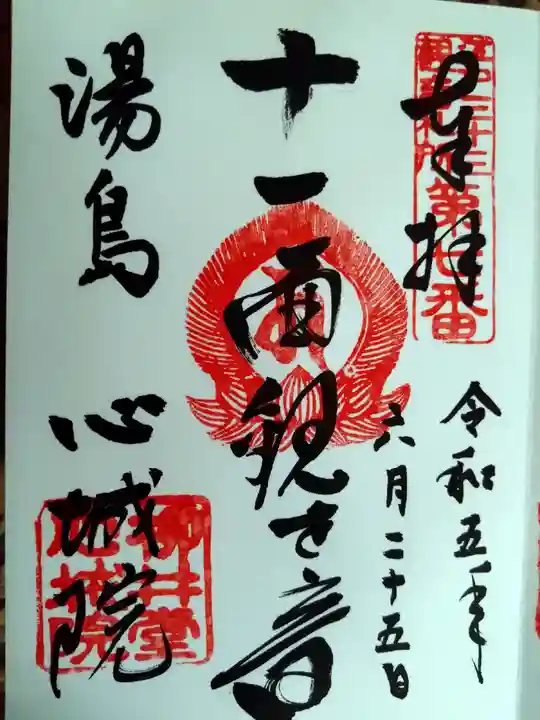 奉拝
令和五年
六月二十五日
十一面観世音
湯島 心城院
第七番
柳井堂
心城院